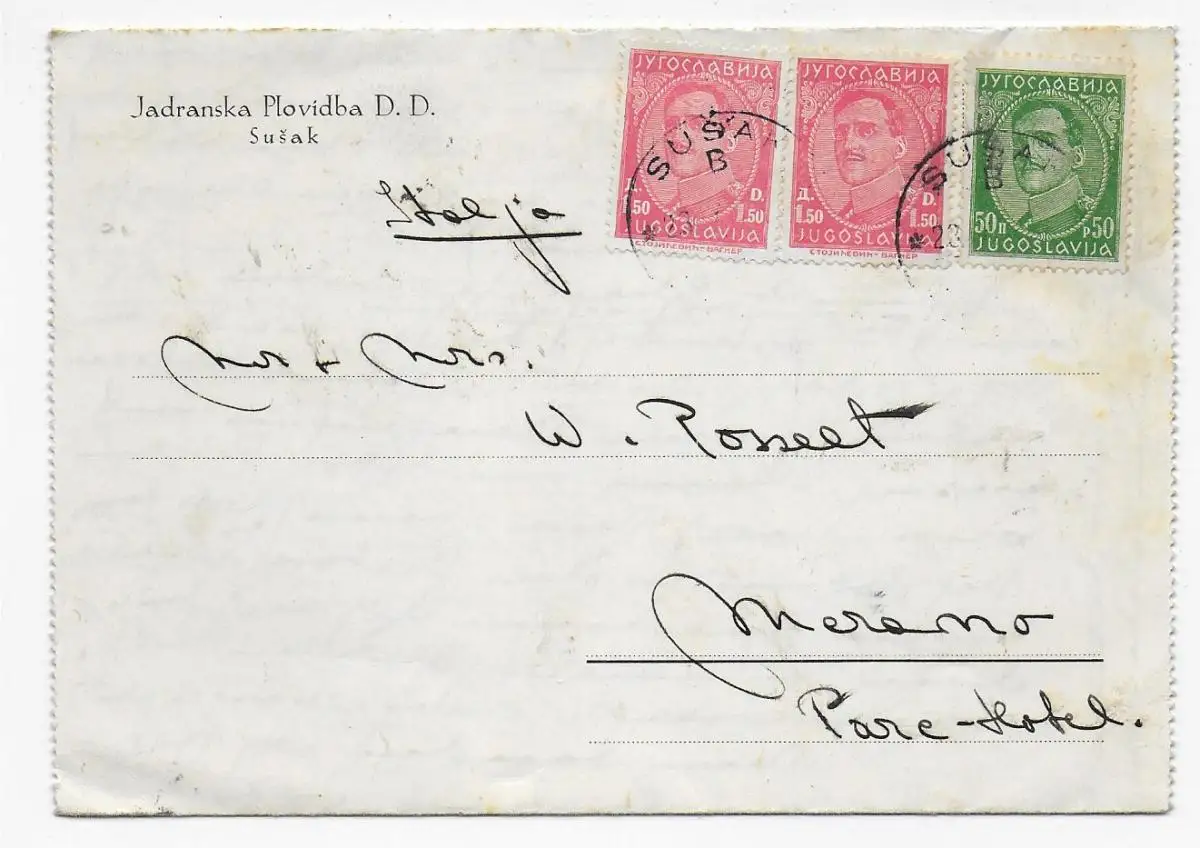 Jadranska Plovidba D. D.
Sušak
ЈУГОСЛАВИЈА
Д. D.
1.50 1.50
JUGOSLAVIJA
СТОЈИЋЕВИЋ-ВАГНЕР
ЈУГОСЛАВИЈА
Д. D.
1.50 1.50
JUGOSLAVIJA
СТОЈИЋЕВИЋ-ВАГНЕР
ЈУГОСЛАВИЈА
50 п p 50
JUGOSLAVIJA
SUŠA
B
SUŠA
B
23
Italja
Mr + Mrs.
W. Rosselt
Merano
Parc-Hotel.